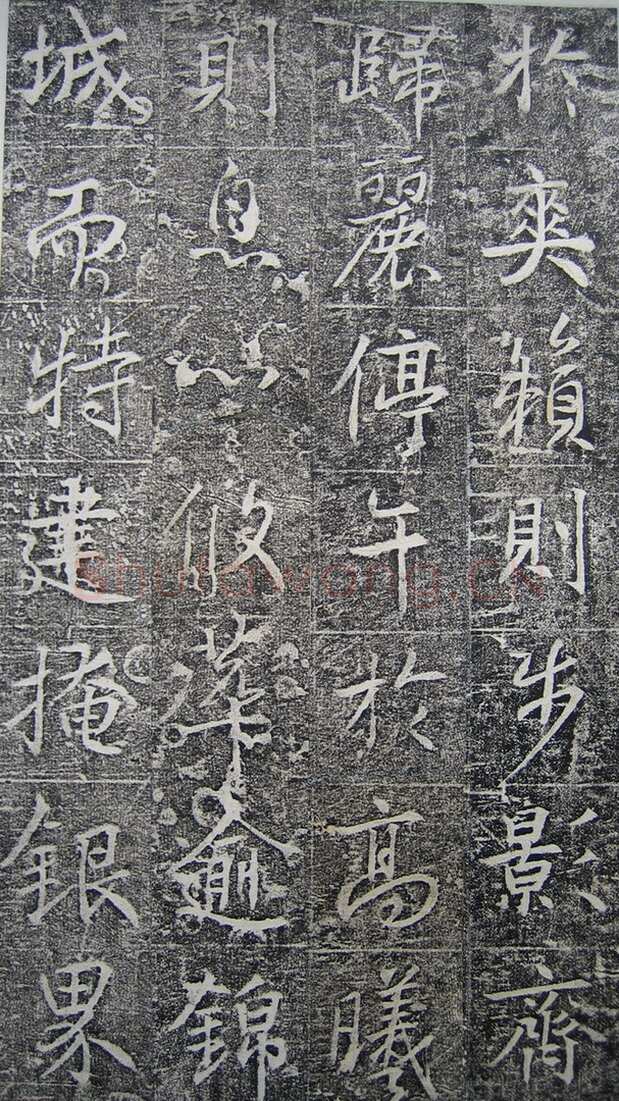 於爽籟則步影齊
歸麗停午於高曦
則息心攸萃逾錦
城而特建掩銀界
shufawang.cn